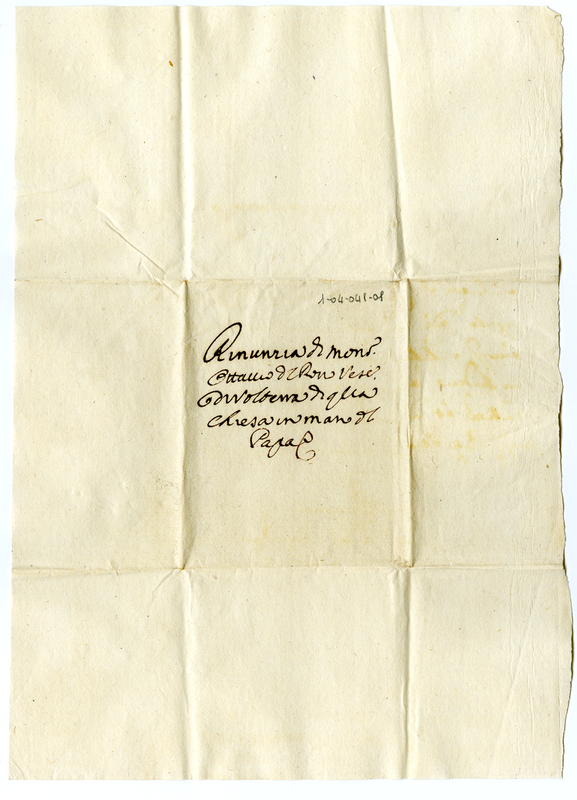 1-04-041-08
Rinunzia di Mons.r
Ottavio del Ron Vesc.
di Volterra di qlla
chiesa in man del
Papa